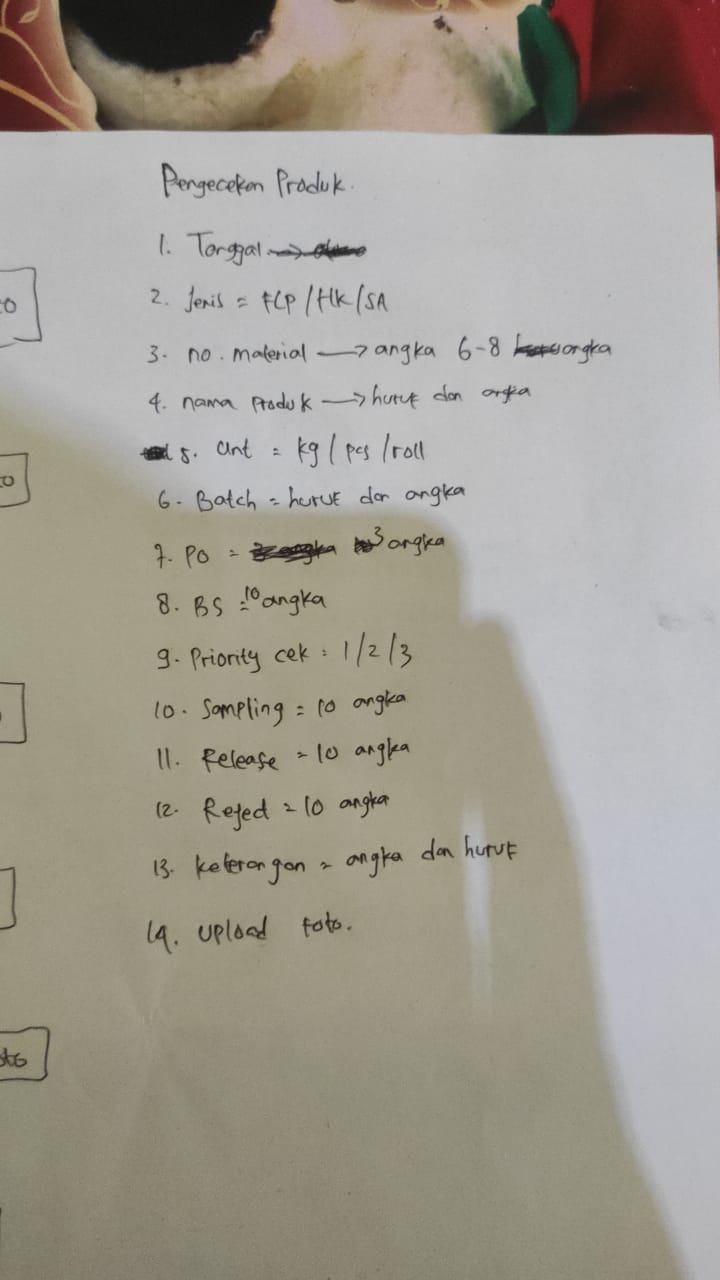 Pengecekan Produk.
1. Tanggal →
2. Jenis = FLP / HK / SA
3. no. material → angka 6-8 angka
4. nama Produk → huruf dan angka
5. Unt = kg / pcs / roll
6. Batch = huruf dan angka
7. PO = 3 angka
8. BS = 10 angka
9. Priority cek : 1/2/3
10. Sampling = 10 angka
11. Release = 10 angka
12. Reject = 10 angka
13. keterangan = angka dan huruf
14. upload foto.